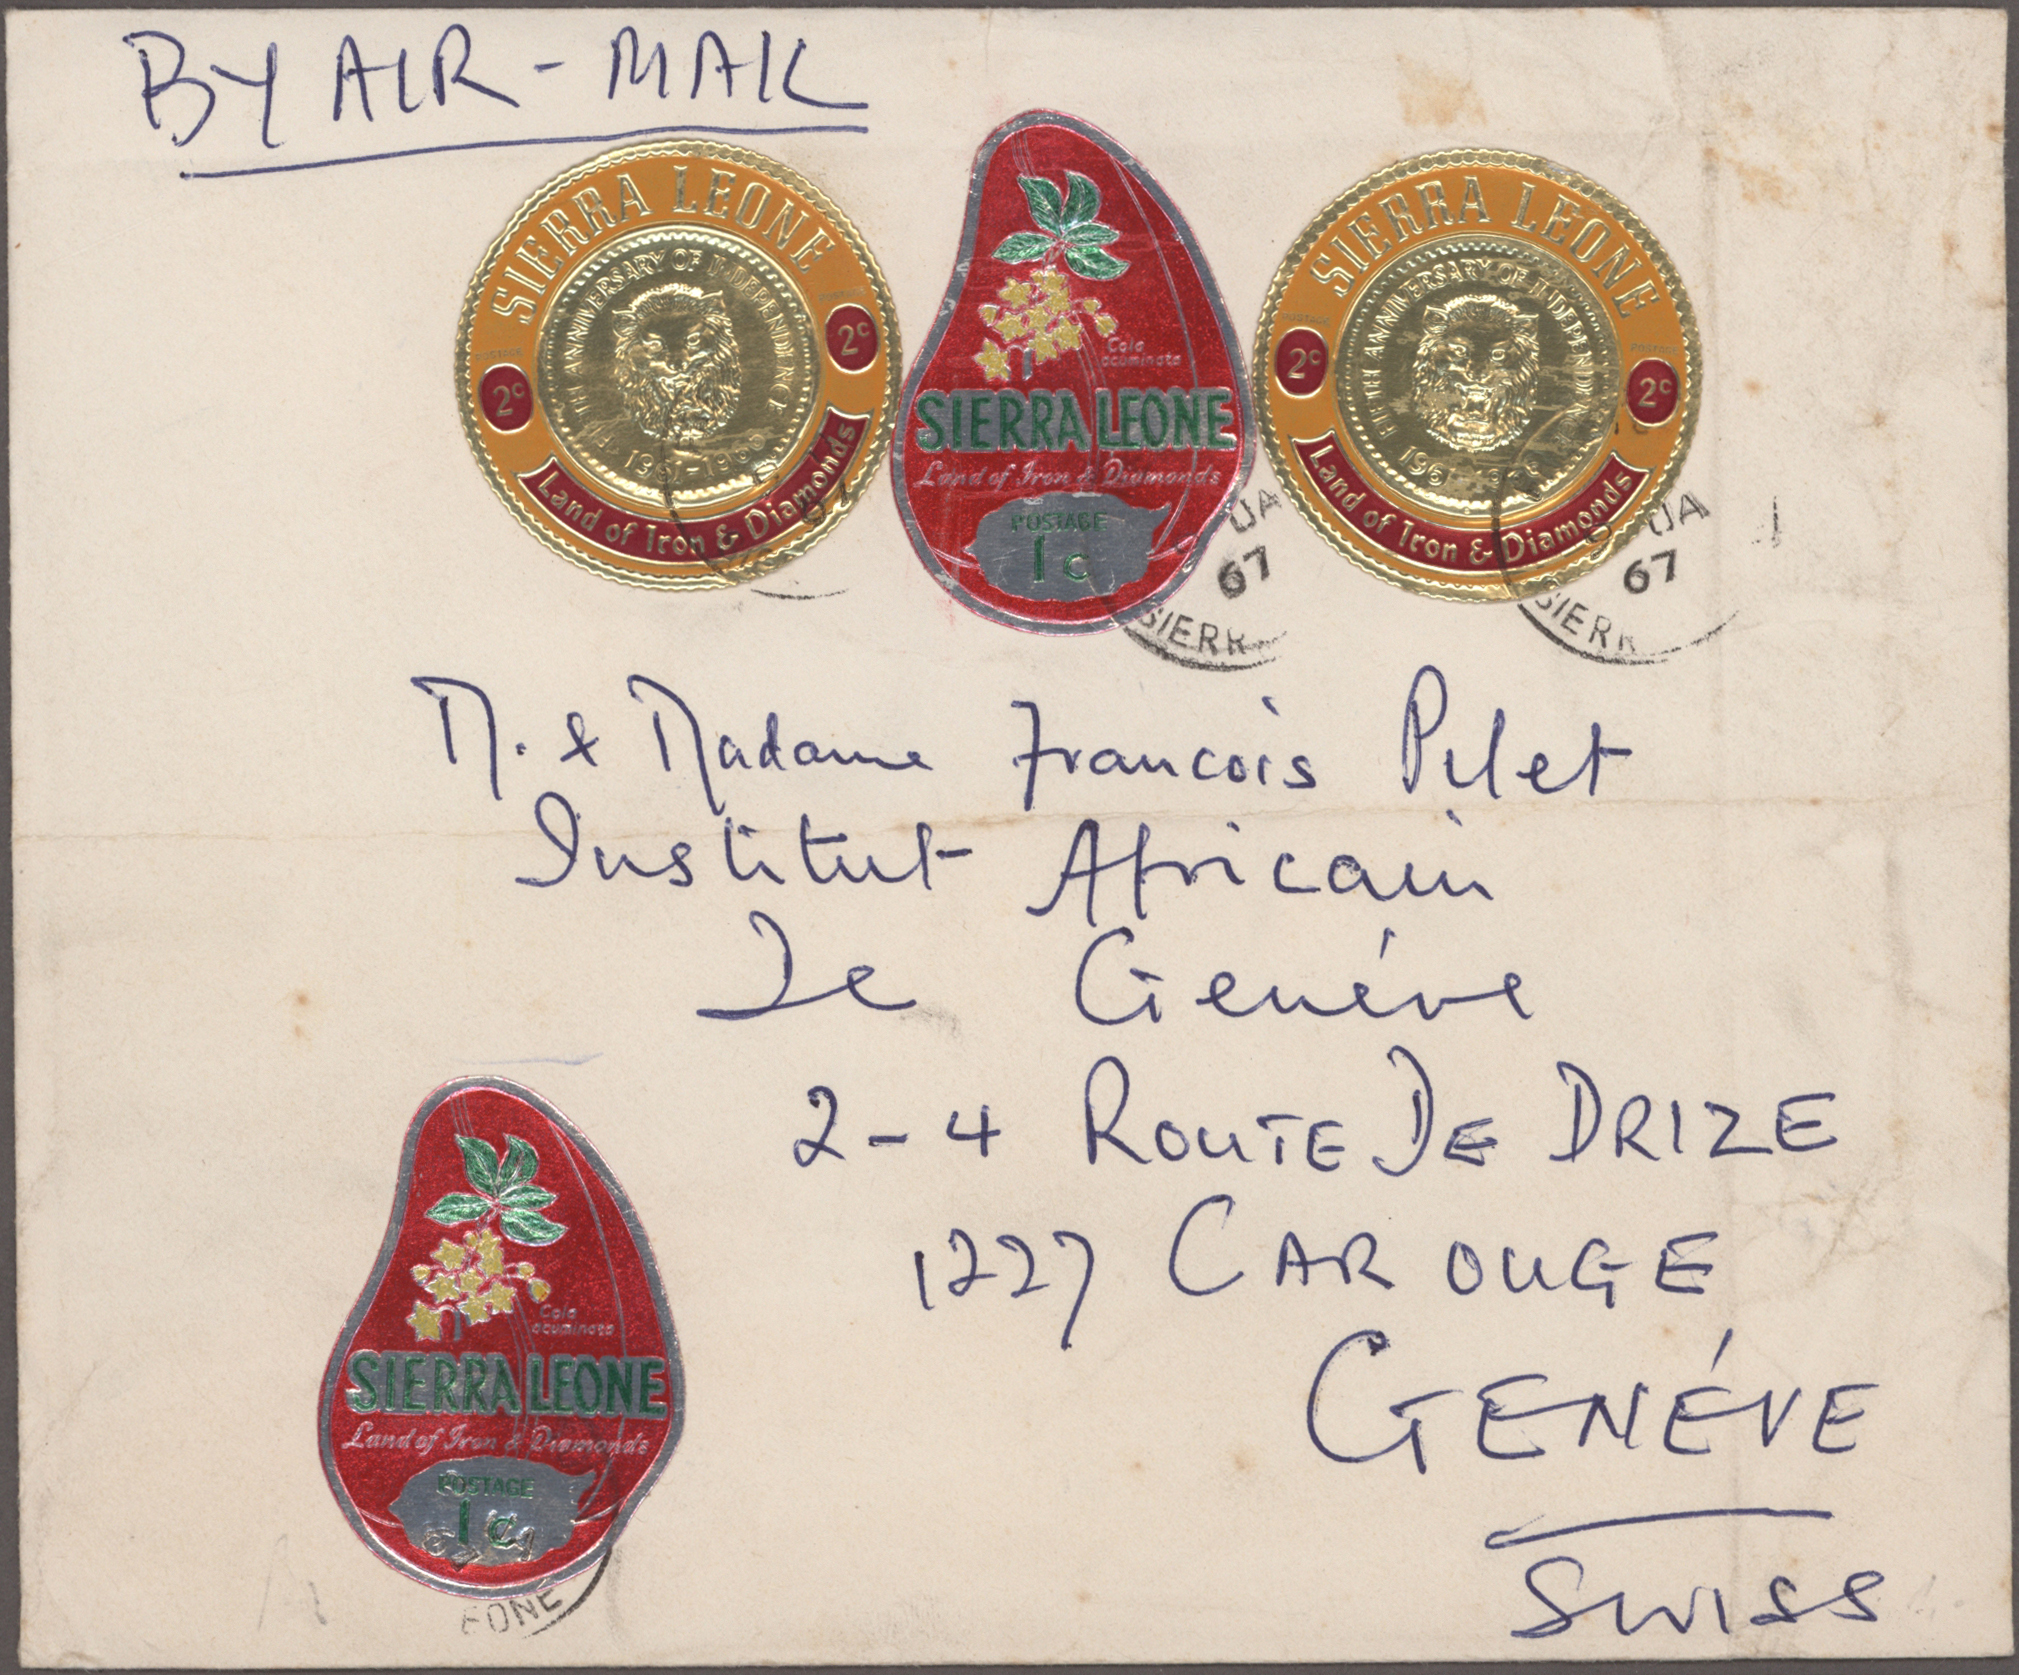 BY AIR-MAIL
SIERRA LEONE
FIFTH ANNIVERSARY OF INDEPENDENCE
1961-1966
POSTAGE
2c
POSTAGE
2c
Land of Iron & Diamonds
Cola
acuminata
SIERRA LEONE
Land of Iron & Diamonds
POSTAGE
1c
SIERRA LEONE
FIFTH ANNIVERSARY OF INDEPENDENCE
1961-1966
POSTAGE
2c
POSTAGE
2c
Land of Iron & Diamonds
67
SIERR
67
SIERR
M. & Madame Francois Pilet
Institut Africain
De Genéve
2-4 ROUTE DE DRIZE
1227 CAROUGE
GENÉVE
SWISS
Cola
acuminata
SIERRA LEONE
Land of Iron & Diamonds
POSTAGE
1c
EONE